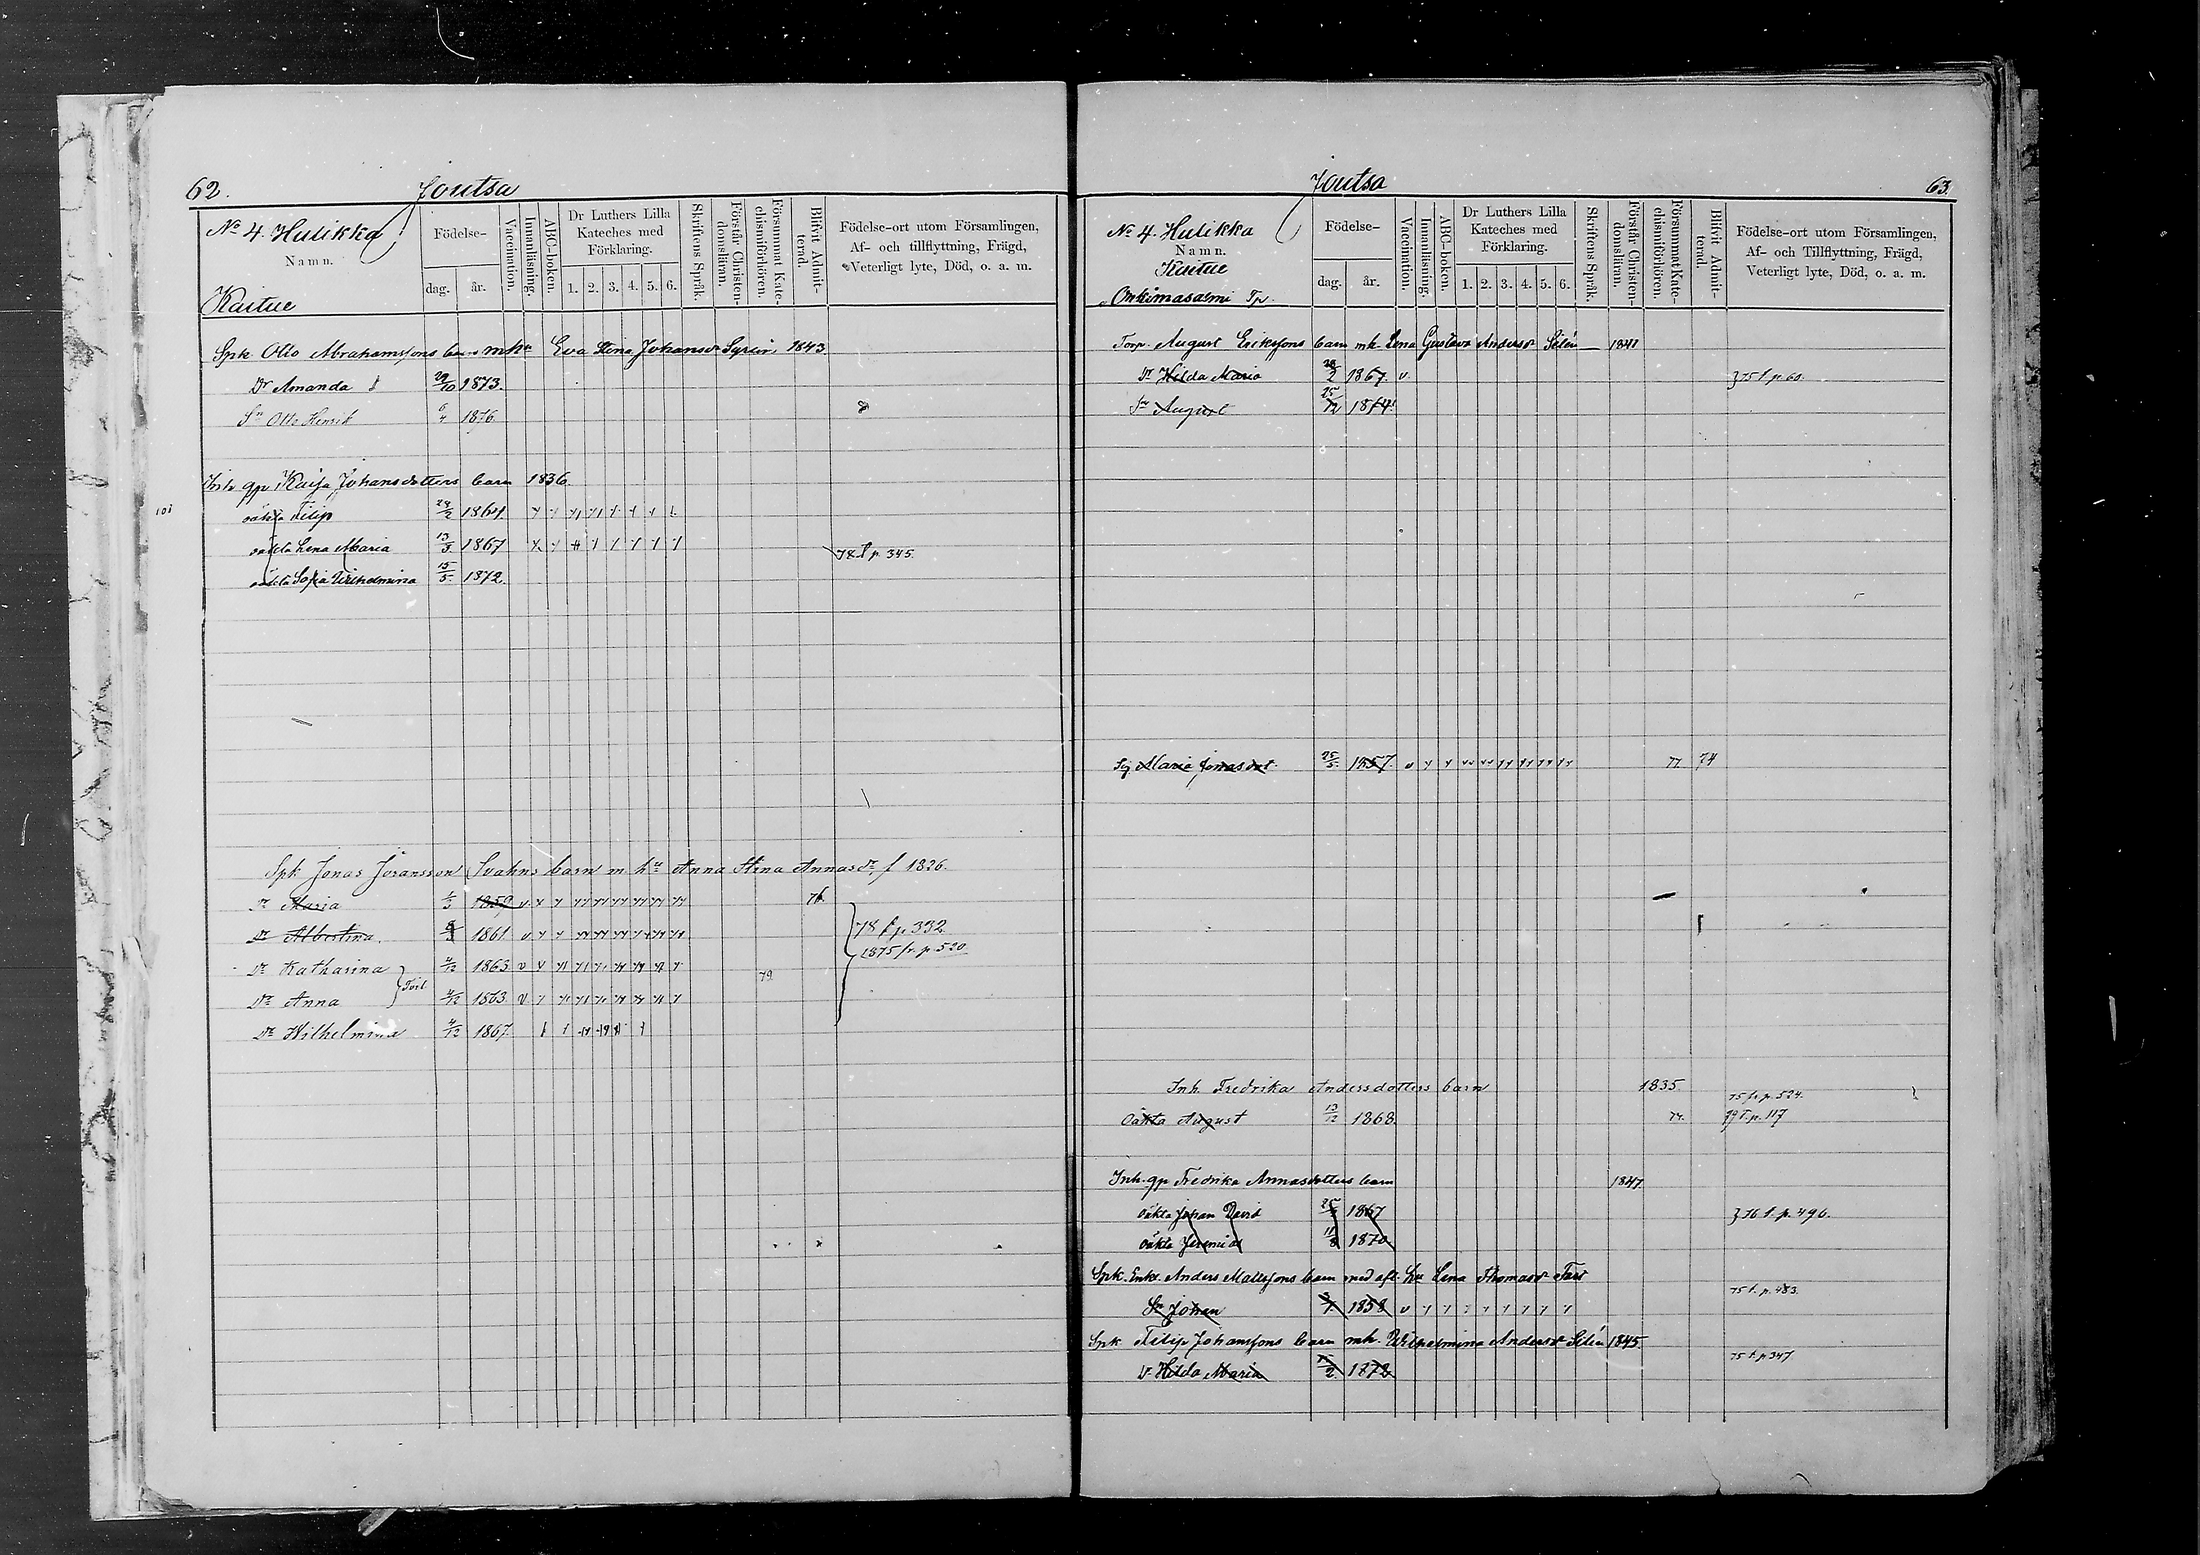 62. Joutsa
No 4. Hulikka
Namn.
Kaitue
Födelse-
dag. år.
Vaccination.
Innanläsning.
ABC-boken.
Dr Luthers Lilla
Kateches med
Förklaring.
1. 2. 3. 4. 5. 6.
Skriftens Språk.
Förstår Christen-
domsläran.
Försummat Kate-
chismiförhören.
Blifvit Admit-
terad.
Födelse-ort utom Församlingen,
Af- och tillflyttning, Frägd,
Veterligt lyte, Död, o. a. m.
Spk Otto Abrahamssons barn m hu Eva Stina Johansdr 1843
Dr Amanda 29/10 1873.
Sn Otto Henrik 6/4 1876
Inh qp Kaisa Johansdotters barn 1836
101 oäkta Filip 24/2 1861
oäkta Lena Maria 13/3 1867 78 f p. 345.
oäkta Sofia Wilhelmina 15/5 1872.
Spk Jonas Göransson Svahns barn m hu Anna Stina Annasdr f 1826.
Dr Maria 1/3 1859 v 76
Dr Albertina 1861 v 78 f p. 332
1875 fr. p. 520
Dr Katharina 4/12 1863 v v 79
Tvil.
Dr Anna 4/12 1863 v
Dr Wilhelmina 4/12 1867.
Joutsa 63.
No 4. Hulikka
Namn.
Kaitue
Onkimasalmi Tp.
Födelse-
dag. år.
Vaccination.
Innanläsning.
ABC-boken.
Dr Luthers Lilla
Kateches med
Förklaring.
1. 2. 3. 4. 5. 6.
Skriftens Språk.
Förstår Christen-
domsläran.
Försummat Kate-
chismiförhören.
Blifvit Admit-
terad.
Födelse-ort utom Församlingen,
Af- och Tillflyttning, Frägd,
Veterligt lyte, Död, o. a. m.
Torp. August Erikssons barn mh. Lena Gustava Andersdr Silén 1841
Dr Hilda Maria 28/2 1867. v. 75 f. p. 60.
Sn August 25/12 1874
Maria Jonasdot. 25/5 1857. v 77. 74
Inh. Fredrika Andersdotters barn 1835.
75 fr. p. 524.
Oäkta August 13/12 1868. 77. 79 f. p. 117
Inh. qp Fredrika Annasdotters barn 1847
oäkta Johan David 1867 76 f. p. 496.
oäkta Jeremias 11/8 1870
Spk. Enkl. Anders Mattssons barn med afl. hu Lena Thomasdr
75 f. p. 483.
Sn Johan 1858 v
Spk Filip Johanssons barn mh. Wilhelmina Andersdr Silén 1845.
75 f. p 347
Dr Hilda Maria 1872